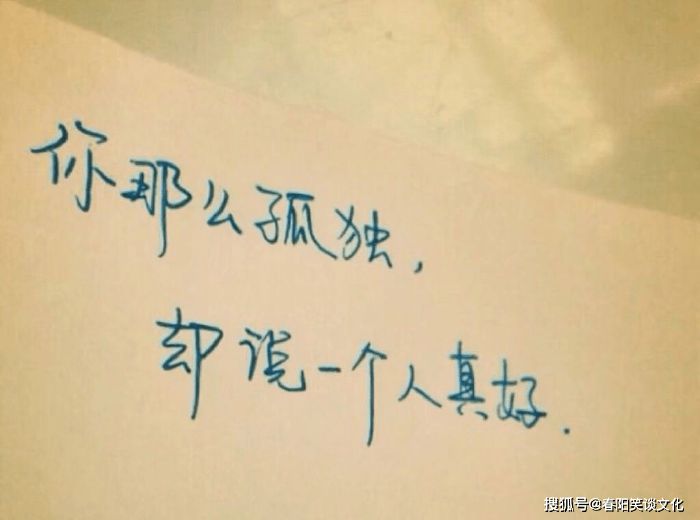 你那么孤独，
却说一个人真好.
搜狐号@春阳笑谈文化